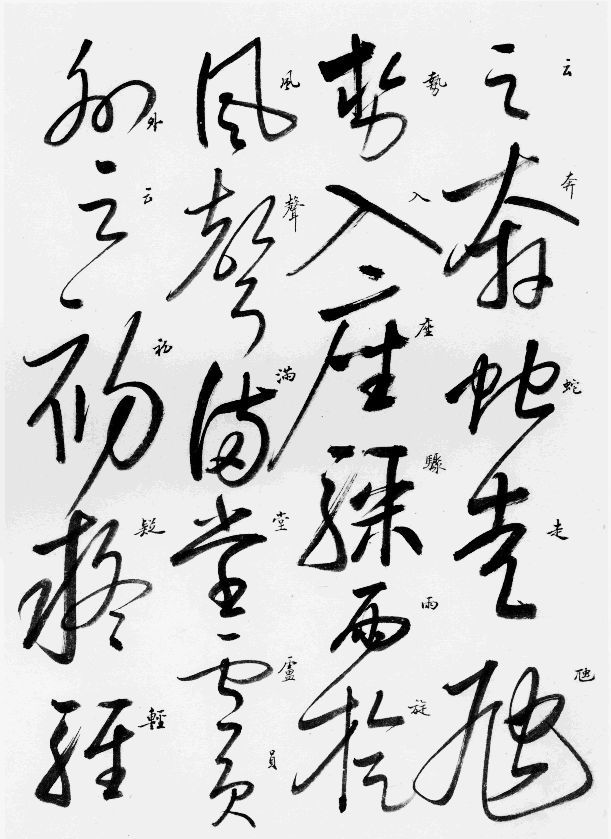 云奔蛇走虺
勢入座驟雨旋
風聲滿堂盧員
外云初疑輕